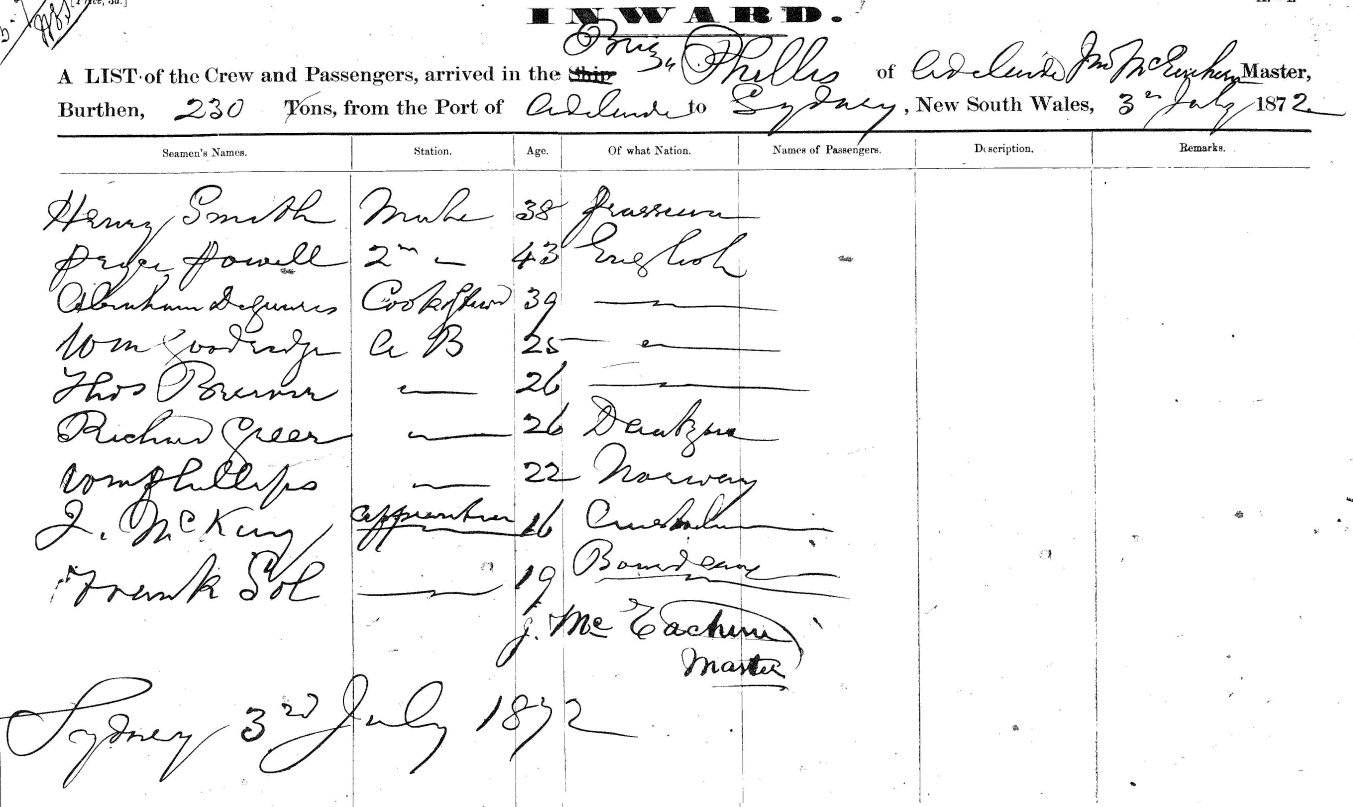 INWARD.
Brig "Phillis
A LIST of the Crew and Passengers, arrived in the Ship of Adelaide Jno McEachern Master,
Burthen, 230 Tons, from the Port of Adelaide to Sydney, New South Wales, 3rd July 1872
Seamen's Names. Station. Age. Of what Nation. Names of Passengers. Description. Remarks.
Henry Smith Mate 38
Powell 2nd " 43 English
Abraham Cook & Stewd 39 "
Wm Goodridge A B 25 "
Thos Brewer " 26 "
Richard Greer " 26
Wm Phillips " 22 Norway
J. McKay apprentice 16
Frank Sol " 19
J. McEachern
Master
Sydney 3rd July 1872